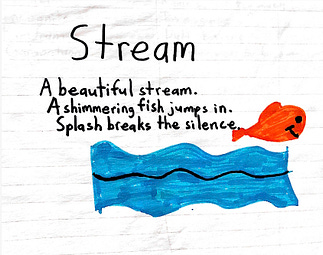 Stream
A beautiful stream.
A shimmering fish jumps in.
Splash breaks the silence..